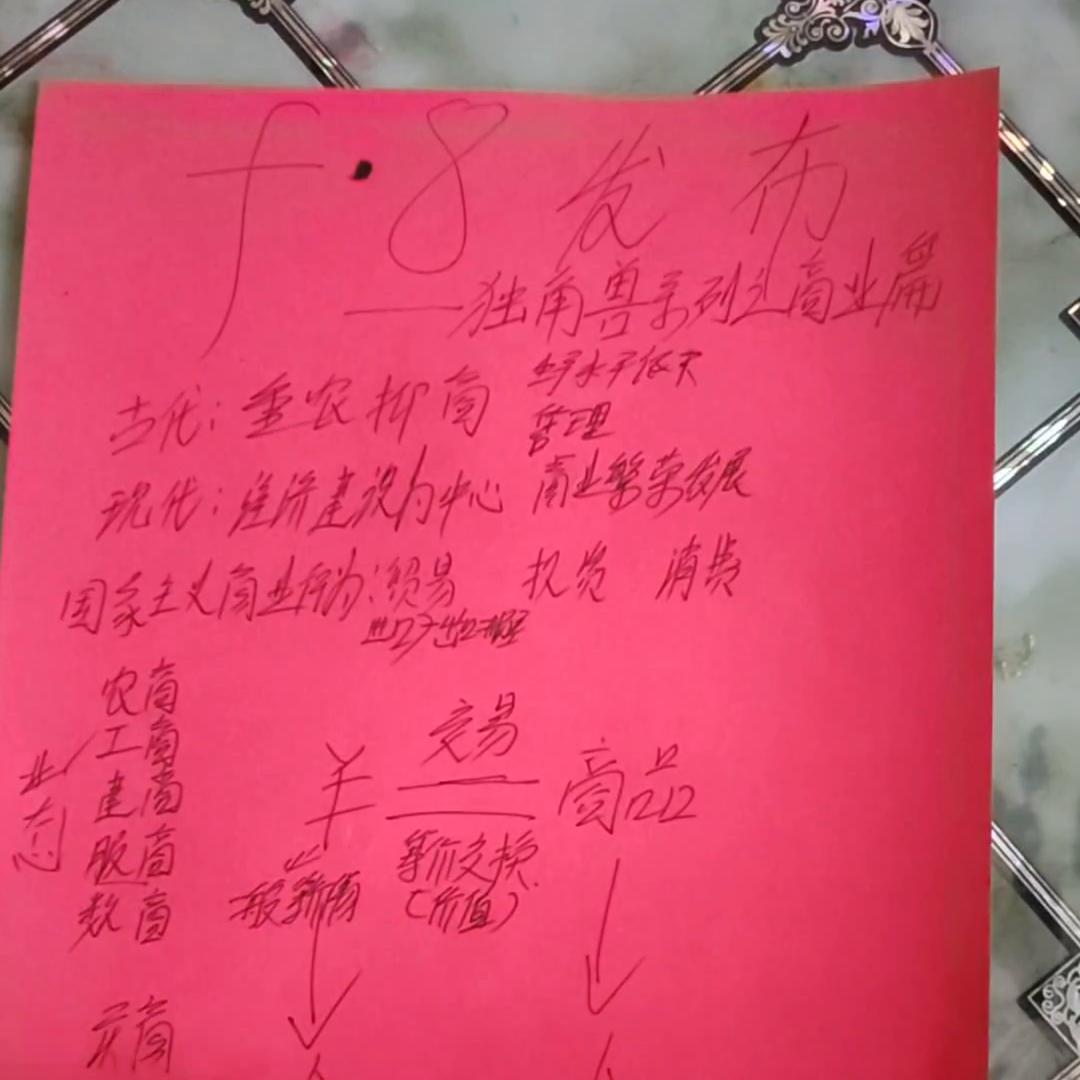 f·8 发布
——独角兽系列之商业篇
古代：重农抑商
管理
现代：经济建设为中心 商业繁荣发展
国家主义商业行为：贸易 投资 消费
农商
工商
建商
服商
数商
业态
交易
¥ 商品
等价交换
（价值）